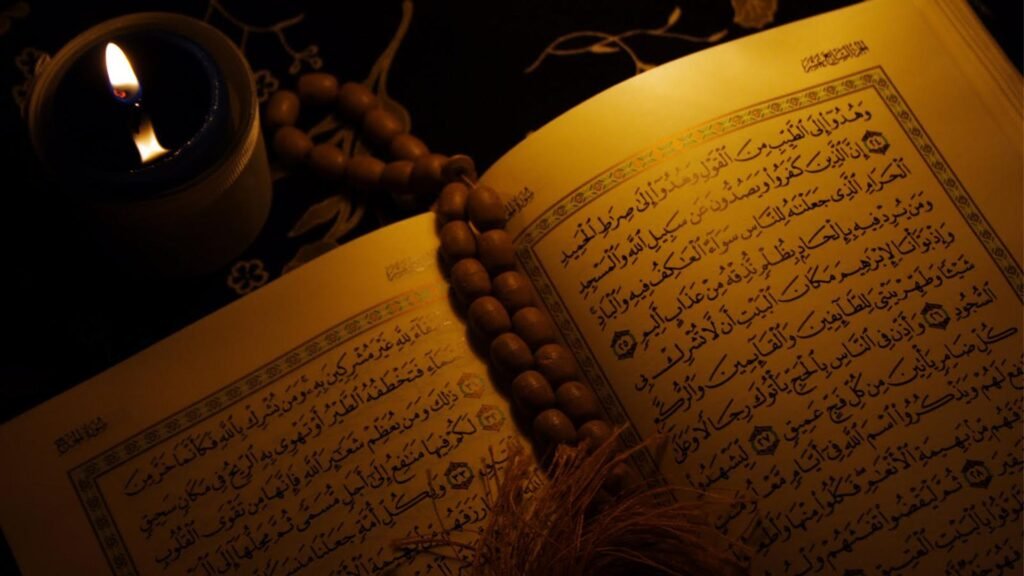 الجزء السابع عشر
وَهُدُوٓا۟ إِلَى ٱلطَّيِّبِ مِنَ ٱلْقَوْلِ وَهُدُوٓا۟ إِلَىٰ صِرَٰطِ ٱلْحَمِيدِ
٢٤ إِنَّ ٱلَّذِينَ كَفَرُوا۟ وَيَصُدُّونَ عَن سَبِيلِ ٱللَّهِ وَٱلْمَسْجِدِ
ٱلْحَرَامِ ٱلَّذِى جَعَلْنَٰهُ لِلنَّاسِ سَوَآءً ٱلْعَٰكِفُ فِيهِ وَٱلْبَادِ
وَمَن يُرِدْ فِيهِ بِإِلْحَادٍۭ بِظُلْمٍ نُّذِقْهُ مِنْ عَذَابٍ أَلِيمٍ ٢٥
وَإِذْ بَوَّأْنَا لِإِبْرَٰهِيمَ مَكَانَ ٱلْبَيْتِ أَن لَّا تُشْرِكْ بِى
شَيْـًٔا وَطَهِّرْ بَيْتِىَ لِلطَّآئِفِينَ وَٱلْقَآئِمِينَ وَٱلرُّكَّعِ
ٱلسُّجُودِ ٢٦ وَأَذِّن فِى ٱلنَّاسِ بِٱلْحَجِّ يَأْتُوكَ رِجَالًا وَعَلَىٰ
كُلِّ ضَامِرٍ يَأْتِينَ مِن كُلِّ فَجٍّ عَمِيقٍ ٢٧ لِّيَشْهَدُوا۟
لَهُمْ وَيَذْكُرُوا۟ ٱسْمَ ٱللَّهِ فِىٓ أَيَّامٍ
مِّنۢ بَهِيمَةِ ٱلْأَنْعَٰمِ فَكُلُوا۟ مِنْهَا وَأَطْعِمُوا۟
٢٨ ثُمَّ لْيَقْضُوا۟ تَفَثَهُمْ
بِٱلْبَيْتِ ٱلْعَتِيقِ
سورة الحج
حُنَفَآءَ لِلَّهِ غَيْرَ مُشْرِكِينَ بِهِۦ وَمَن يُشْرِكْ بِٱللَّهِ فَكَأَنَّمَا خَرَّ مِنَ
ٱلسَّمَآءِ فَتَخْطَفُهُ ٱلطَّيْرُ أَوْ تَهْوِى بِهِ ٱلرِّيحُ فِى مَكَانٍ سَحِيقٍ
٣١ ذَٰلِكَ وَمَن يُعَظِّمْ شَعَٰٓئِرَ ٱللَّهِ فَإِنَّهَا مِن تَقْوَى ٱلْقُلُوبِ
لَكُمْ فِيهَا مَنَٰفِعُ إِلَىٰٓ أَجَلٍ مُّسَمًّى ثُمَّ مَحِلُّهَآ إِلَى
٣٣ وَلِكُلِّ أُمَّةٍ جَعَلْنَا مَنسَكًا